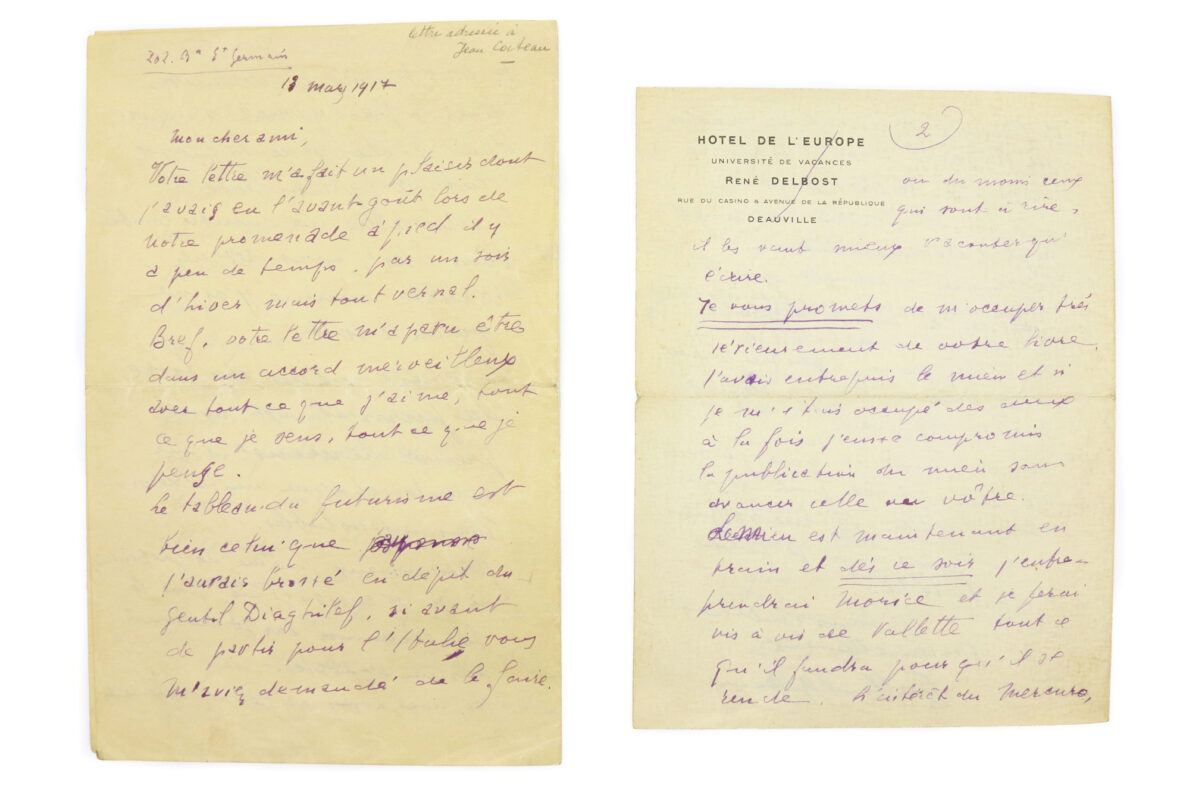 202. Bd St Germain
lettre adressée à
Jean Cocteau
13 mars 1917
Mon cher ami,
Votre lettre m'a fait un plaisir dont
j'avais eu l'avant-goût lors de
notre promenade à pied il y
a peu de temps, par un soir
d'hiver mais tout vernal.
Bref, votre lettre m'a paru être
dans un accord merveilleux
avec tout ce que j'aime, tout
ce que je sens, tout ce que je
pense.
Le tableau du futurisme est
bien celui que
j'aurais brossé en dépit du
gentil Diaghilef, si avant
de partir pour l'Italie vous
m'aviez demandé de le faire.
2
HOTEL DE L'EUROPE
UNIVERSITÉ DE VACANCES
RENÉ DELBOST
RUE DU CASINO & AVENUE DE LA RÉPUBLIQUE
DEAUVILLE
ou du moins ceux
qui sont à rire,
il les vaut mieux raconter qu'
écrire.
Je vous promets de m'occuper très
sérieusement de votre livre.
J'avais entrepris le mien et si
je m'étais occupé des deux
à la fois j'eusse compromis
la publication du mien sans
avancer celle du vôtre.
Le mien est maintenant en
train et dès ce soir j'entre-
prendrai Morice et je ferai
vis à vis de Vallette tout ce
qu'il faudra pour qu'il se
rende. L'intérêt du Mercure,